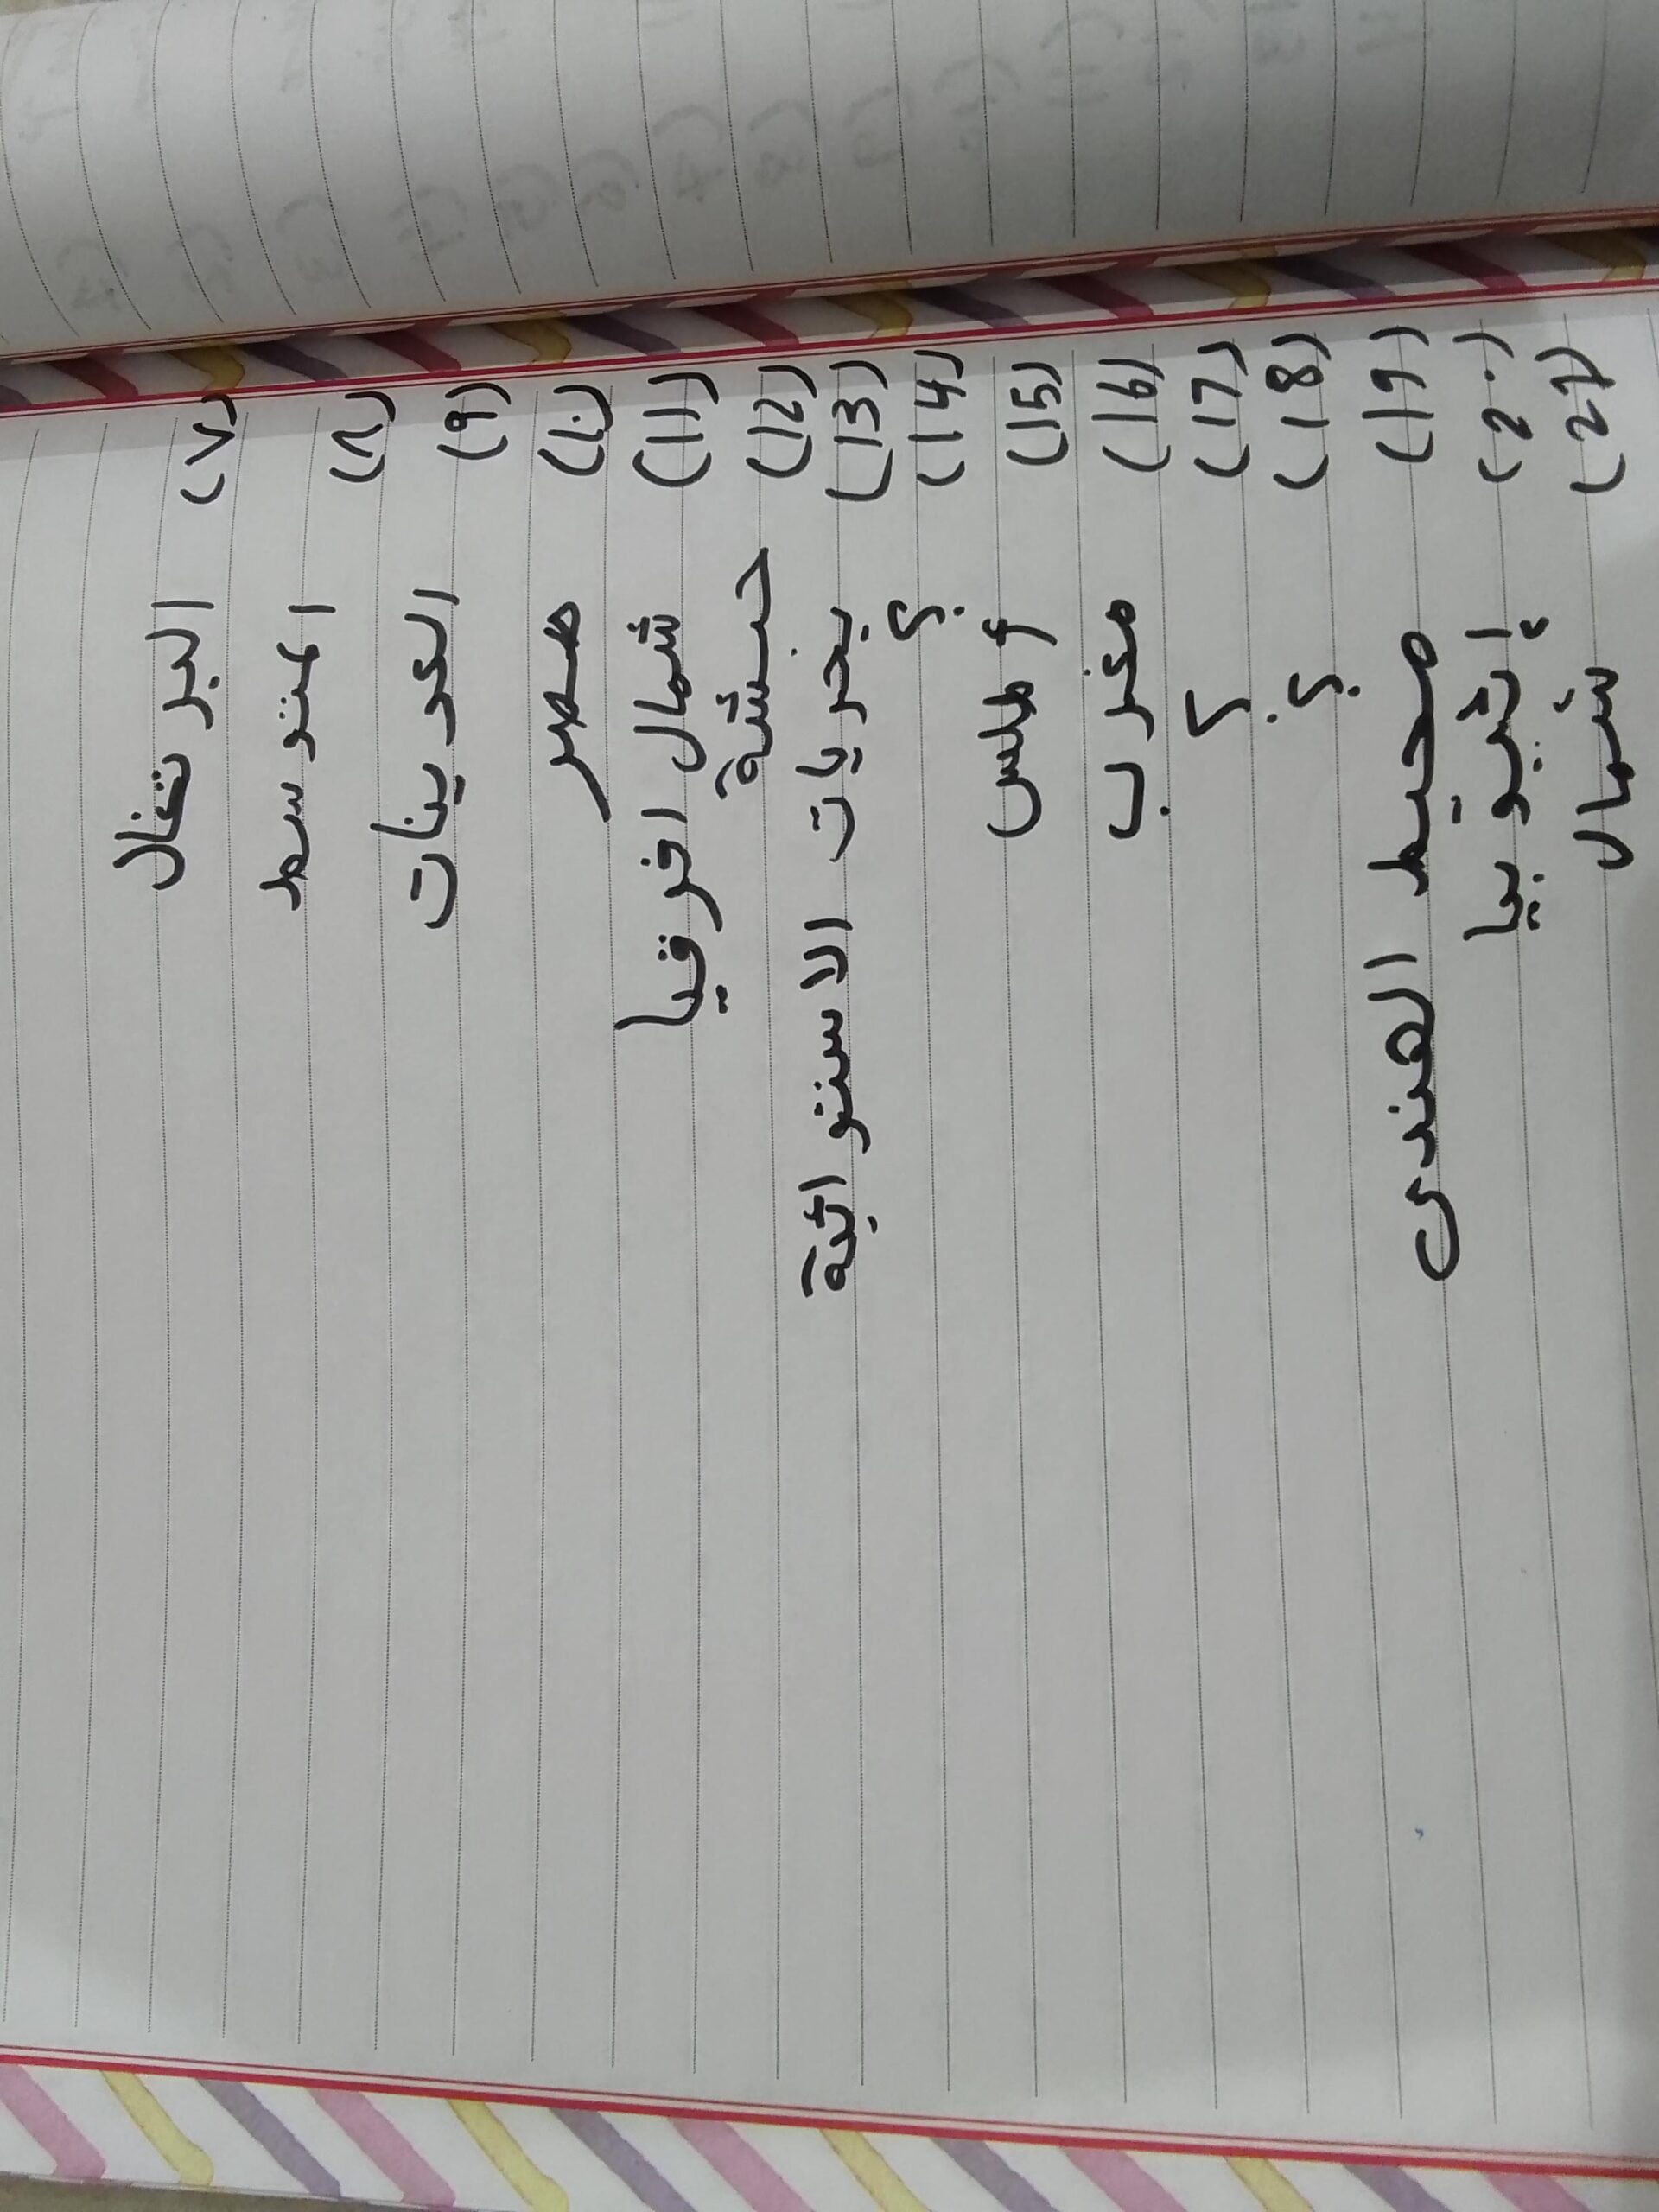 (٧) البرتغال
(٨) المتوسط
(٩) العوينات
(١٠) مصر
(11) شمال افرقيا
(12) حبشة
(13) بحريات الاستوائية
(14) ؟
(15) أطلس
(16) مغرب
(17) ؟
(18) ؟
(19) محيط الهندى
(2٠) إثيوبيا
(21) شمال